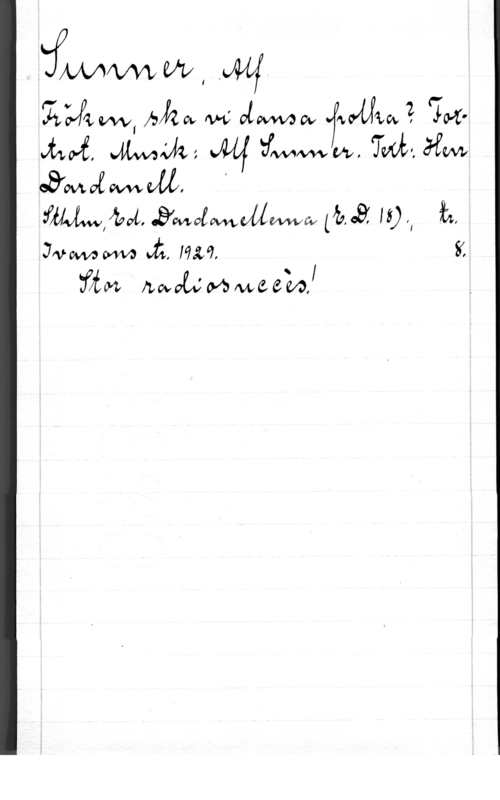 Sunner, Alf
Fröken, ska vi dansa polka? Fox-
trot. Musik: Alf Sunner. Text: Herr
Dardanell.
Sthlm, Ed. Dardanellerna (E. D. 18)., tr.
Ivarsons tr. 1929. 8.
Stor radiosuccès!